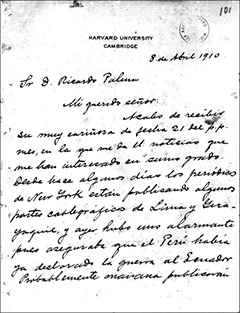 101
HARVARD UNIVERSITY
CAMBRIDGE
8 de Abril 1910
Sr D. Ricardo Palma
Mi querido señor:
Acabo de recibir
su muy cariñosa de fecha 21 del p.p.
mes, en la que me da el noticias que
me han interesado en sumo grado.
Desde hace algunos días los periodicos
de New York están publicando algunos
partes cablegráficos de Lima y Gua-
yaquil, y ayer hubo uno alarmante
pues aseguraba que el Perú había
ya declarado la guerra al Ecuador
Probablemente mañana publicarán